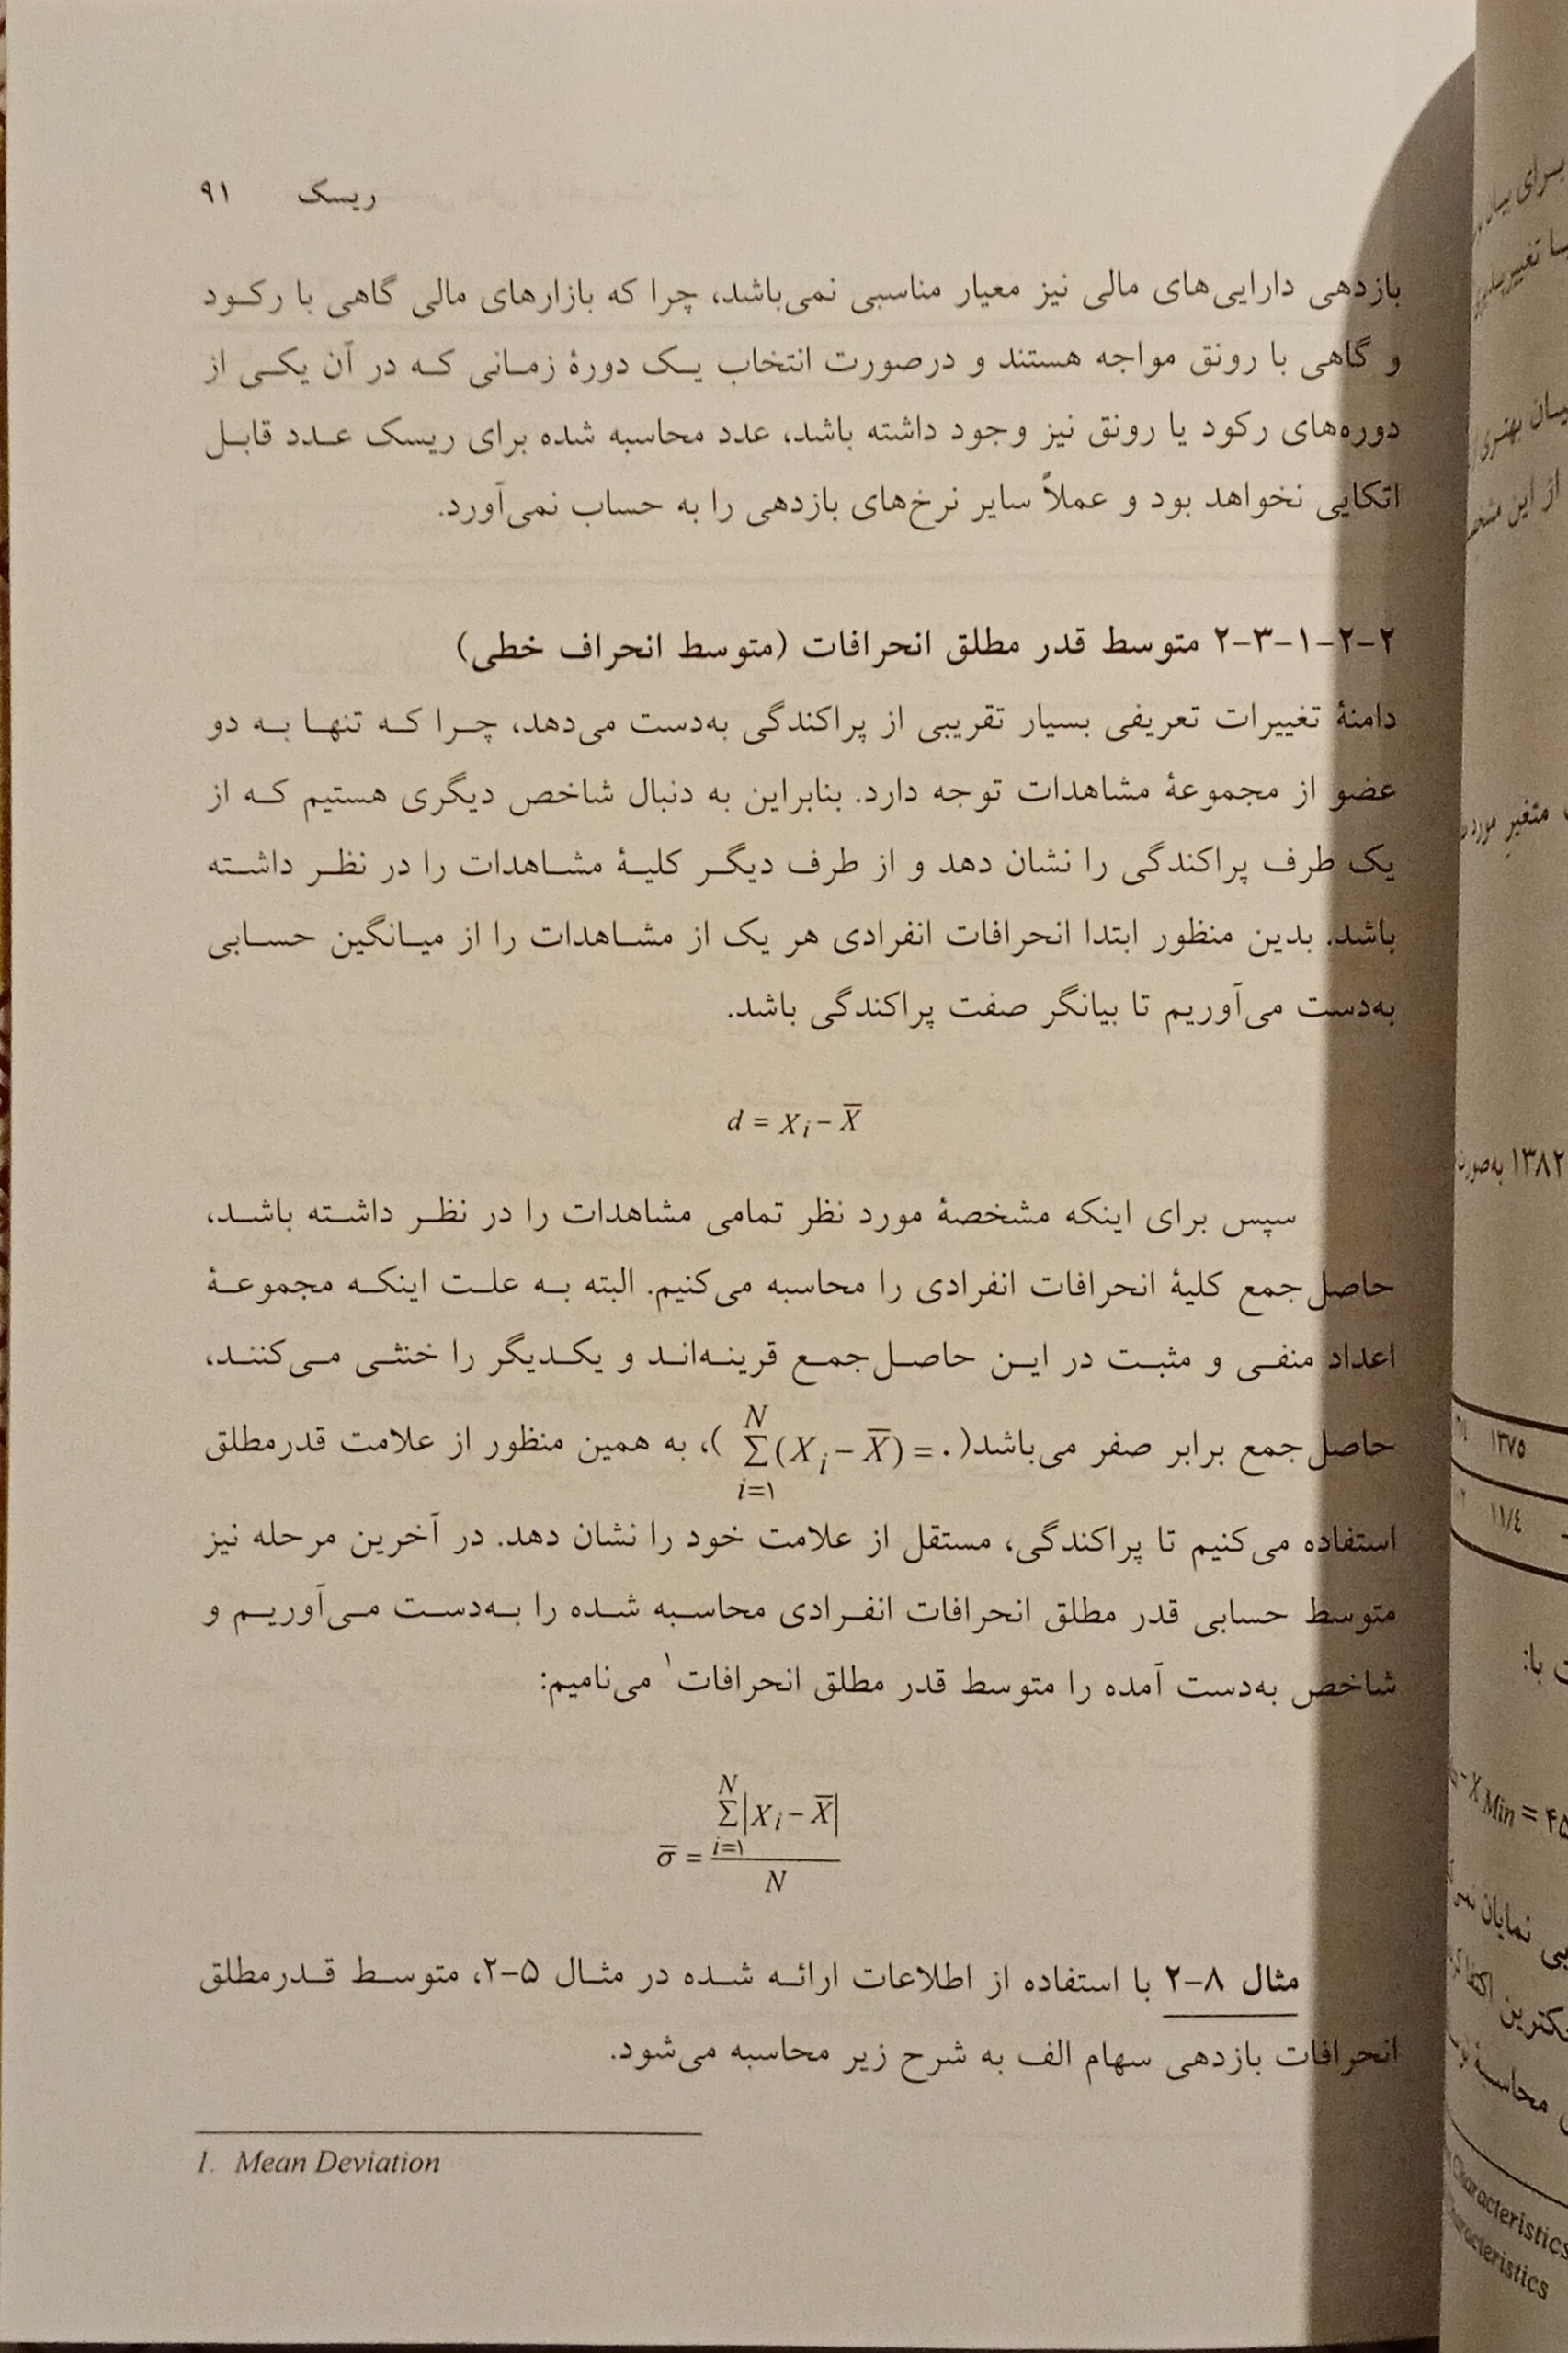 ریسک ۹۱
بازدهی دارایی‌های مالی نیز معیار مناسبی نمی‌باشد، چرا که بازارهای مالی گاهی با رکود
و گاهی با رونق مواجه هستند و درصورت انتخاب یک دورهٔ زمانی که در آن یکی از
دوره‌های رکود یا رونق نیز وجود داشته باشد، عدد محاسبه شده برای ریسک عدد قابل
اتکایی نخواهد بود و عملاً سایر نرخ‌های بازدهی را به حساب نمی‌آورد.
۲-۳-۱-۲-۲ متوسط قدر مطلق انحرافات (متوسط انحراف خطی)
دامنهٔ تغییرات تعریفی بسیار تقریبی از پراکندگی به‌دست می‌دهد، چرا که تنها به دو
عضو از مجموعهٔ مشاهدات توجه دارد. بنابراین به دنبال شاخص دیگری هستیم که از
یک طرف پراکندگی را نشان دهد و از طرف دیگر کلیهٔ مشاهدات را در نظر داشته
باشد. بدین منظور ابتدا انحرافات انفرادی هر یک از مشاهدات را از میانگین حسابی
به‌دست می‌آوریم تا بیانگر صفت پراکندگی باشد.
d = X_i − X̅
سپس برای اینکه مشخصهٔ مورد نظر تمامی مشاهدات را در نظر داشته باشد،
حاصل‌جمع کلیهٔ انحرافات انفرادی را محاسبه می‌کنیم. البته به علت اینکه مجموعهٔ
اعداد منفی و مثبت در این حاصل‌جمع قرینه‌اند و یکدیگر را خنثی می‌کنند،
حاصل‌جمع برابر صفر می‌باشد( N Σ i=۱ (X_i − X̅) = ۰ )، به همین منظور از علامت قدرمطلق
استفاده می‌کنیم تا پراکندگی، مستقل از علامت خود را نشان دهد. در آخرین مرحله نیز
متوسط حسابی قدر مطلق انحرافات انفرادی محاسبه شده را به‌دست می‌آوریم و
شاخص به‌دست آمده را متوسط قدر مطلق انحرافات۱ می‌نامیم:
N
Σ|X_i − X̅|
σ̅ = i=۱
N
مثال ۸-۲ با استفاده از اطلاعات ارائه شده در مثال ۵-۲، متوسط قدرمطلق
انحرافات بازدهی سهام الف به شرح زیر محاسبه می‌شود.
1. Mean Deviation
برای
تغییر
بهتری
از این
متغیر مورد
۱۳۸۲
۱۳۷۵
۱۱/٤
با:
X Min =
نمایان
محاسبهٔ
Characteristics